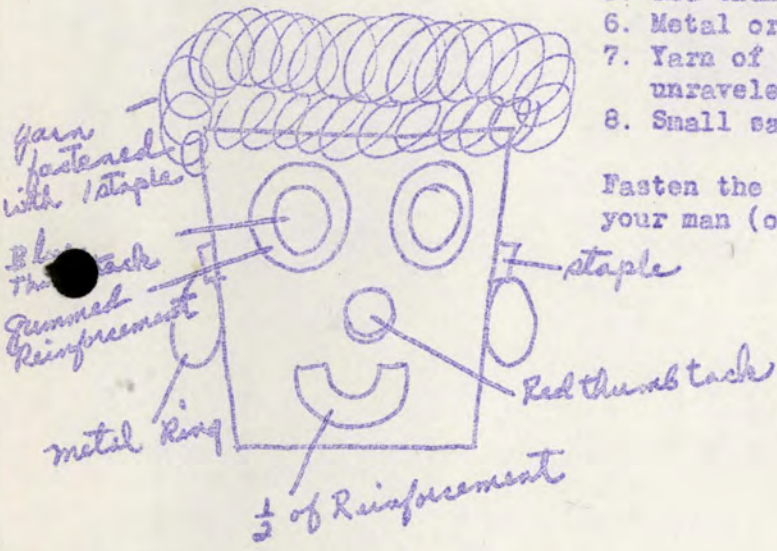 6. Metal or
7. Yarn of
unravele
8. Small sa
Fasten the
your man (o
yarn
fastened
with 1 staple
Blue
Th tack
Gummed
Reinforcement
metal Ring
staple
Red thumb tack
1/2 of Reinforcement